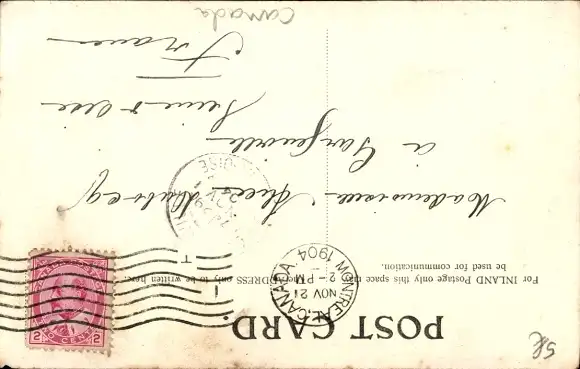 POST CARD
For INLAND Postage only this space may be used for communication.
The ADDRESS only to be written here.
MONTREAL, CANADA.
NOV 21
2 - PM
1904
T
1
TWO CENTS
2 2
Mademoiselle Alice
à Gargenville
Seine & Oise
France
Canada